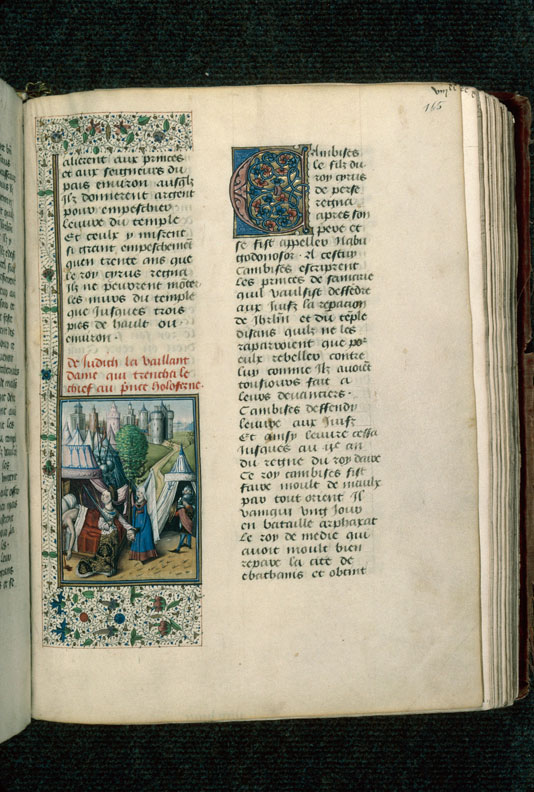 165
alierent aux princes
et aux seigneurs du
pais enuiron ausqlz
Ilz donnerent argent
pour empeschier
leuure du temple
Et ceulx y misrent
si grant empeschemēt
quen trente ans que
le roy cyrus regna
Ilz ne peurent mōter
les murs du temple
que Jusques trois
pies de hault ou
enuiron
de Judich la vaillant
dame qui trencha le
chief au prīce holoferne
Cambises
le filz du
roy cyrus
de perse
regna
apres son
pere et
se fist appeller Nabu
godonosor. A cestuy
Cambises escriprent
les princes de samarie
quil vaulsist deffēdre
aux Juifz la repacion
de Jhrlm et du tēple
disans quilz ne les
rapareroient que por
eulx rebeller contre
luy comme Ilz auoiēt
tousiours fait a
leurs deuanciers.
Cambises deffendy
leuure aux Juifz
Et ainsy leuure cessa
Jusques au ije an
du regne du roy daire
Ce roy cambises fist
faire moult de maulx
par tout orient Il
vainqui vng Jour
en bataille arphaxat
le roy de medie qui
auoit moult bien
repare la cite de
ebathanis et obtint